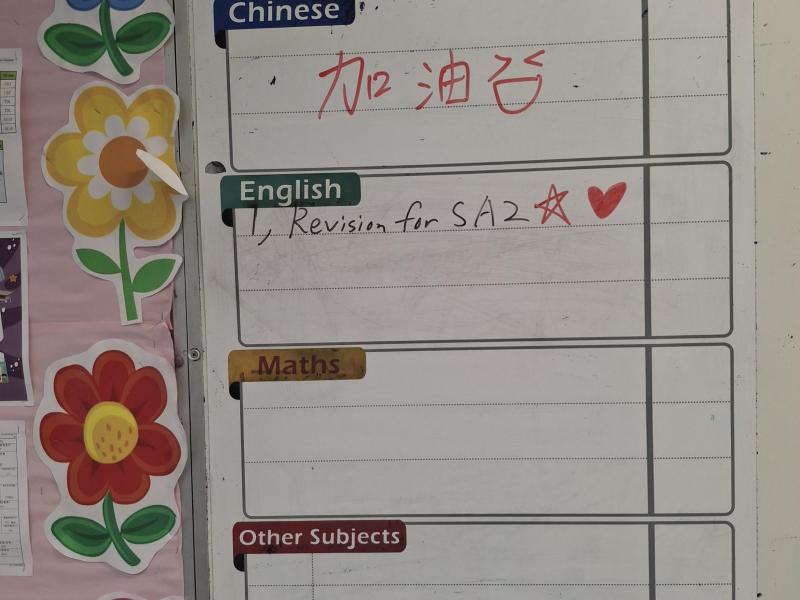 Chinese
加油
English
1, Revision for SA2
Maths
Other Subjects